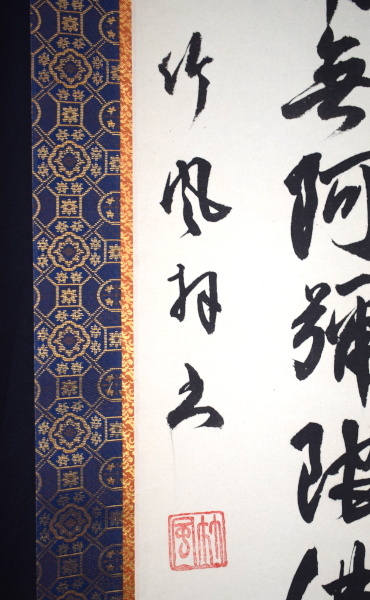 無阿彌陀佛
竹風拜書
竹風